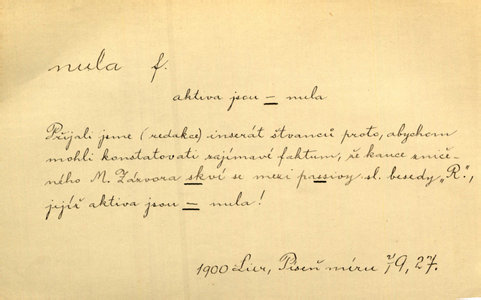 nula f.
aktiva jsou = nula
Přijali jsme (redakce) inserát štvanců proto, abychom
mohli konstatovati zajímavé faktum, že kauce zniče-
ného M. Závora skví se mezi passivy sl. besedy „R.",
jejíž aktiva jsou = nula!
1900 Lier, Píseň míru 9, 27.